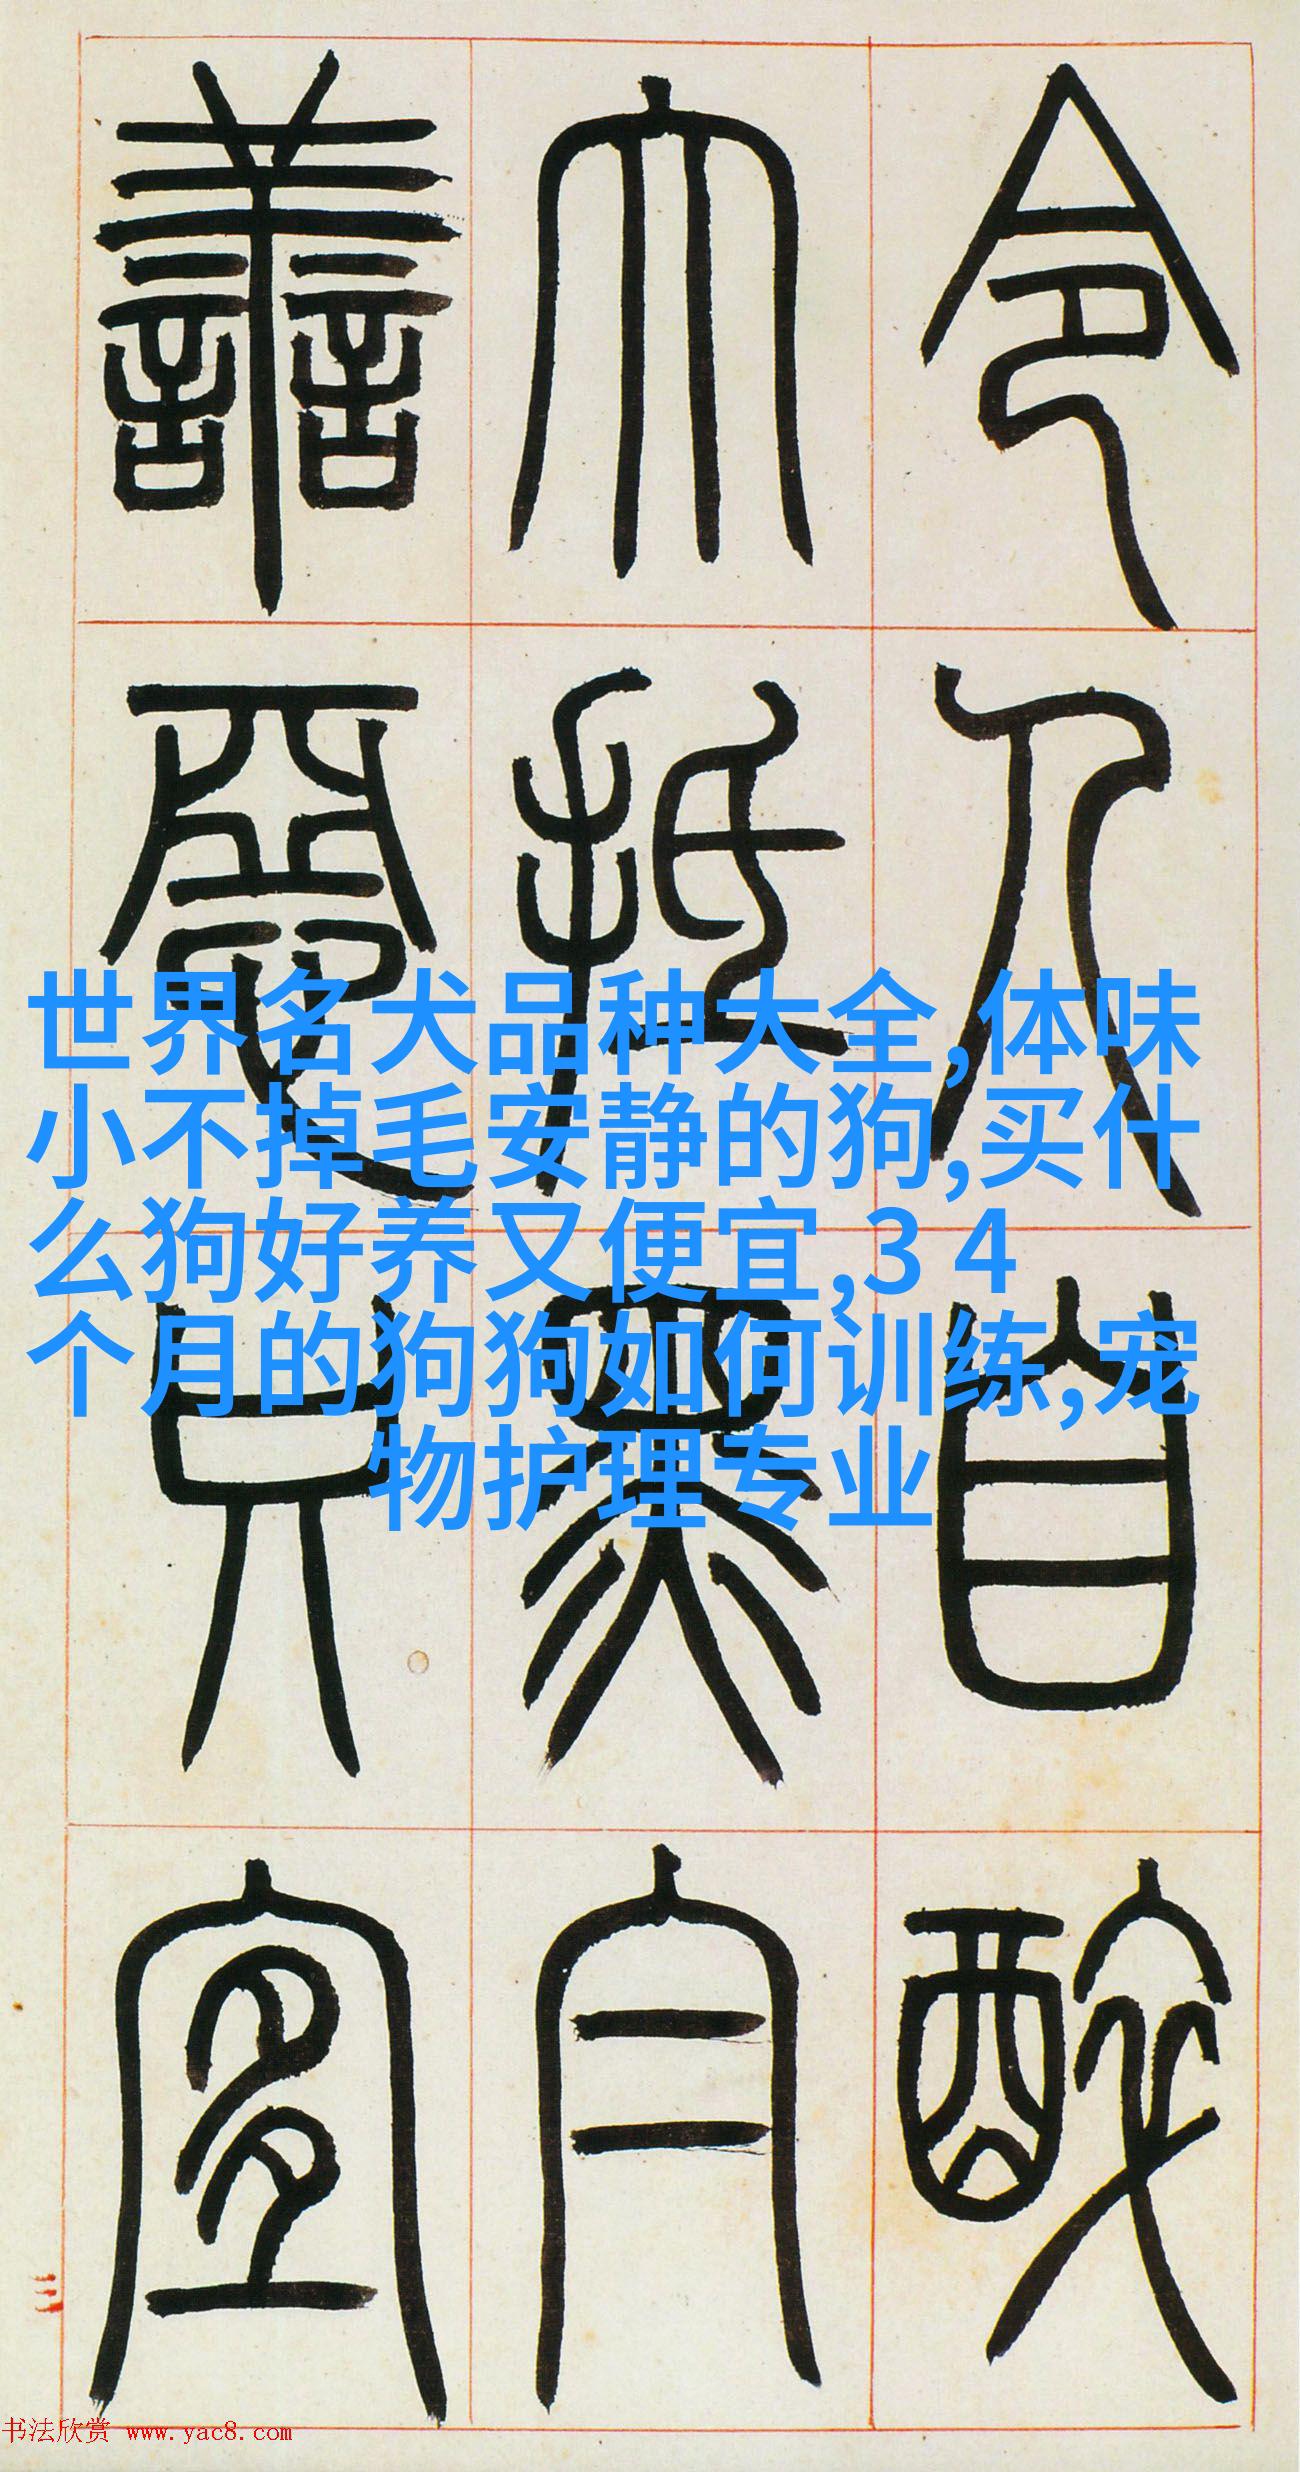 令人自醉
大抵眾
善惡只宜
世界名犬品种大全,体味
小不掉毛安静的狗,买什
么狗好养又便宜,3 4
个月的狗狗如何训练,宠
物护理专业
三
书法欣赏 www.yac8.com